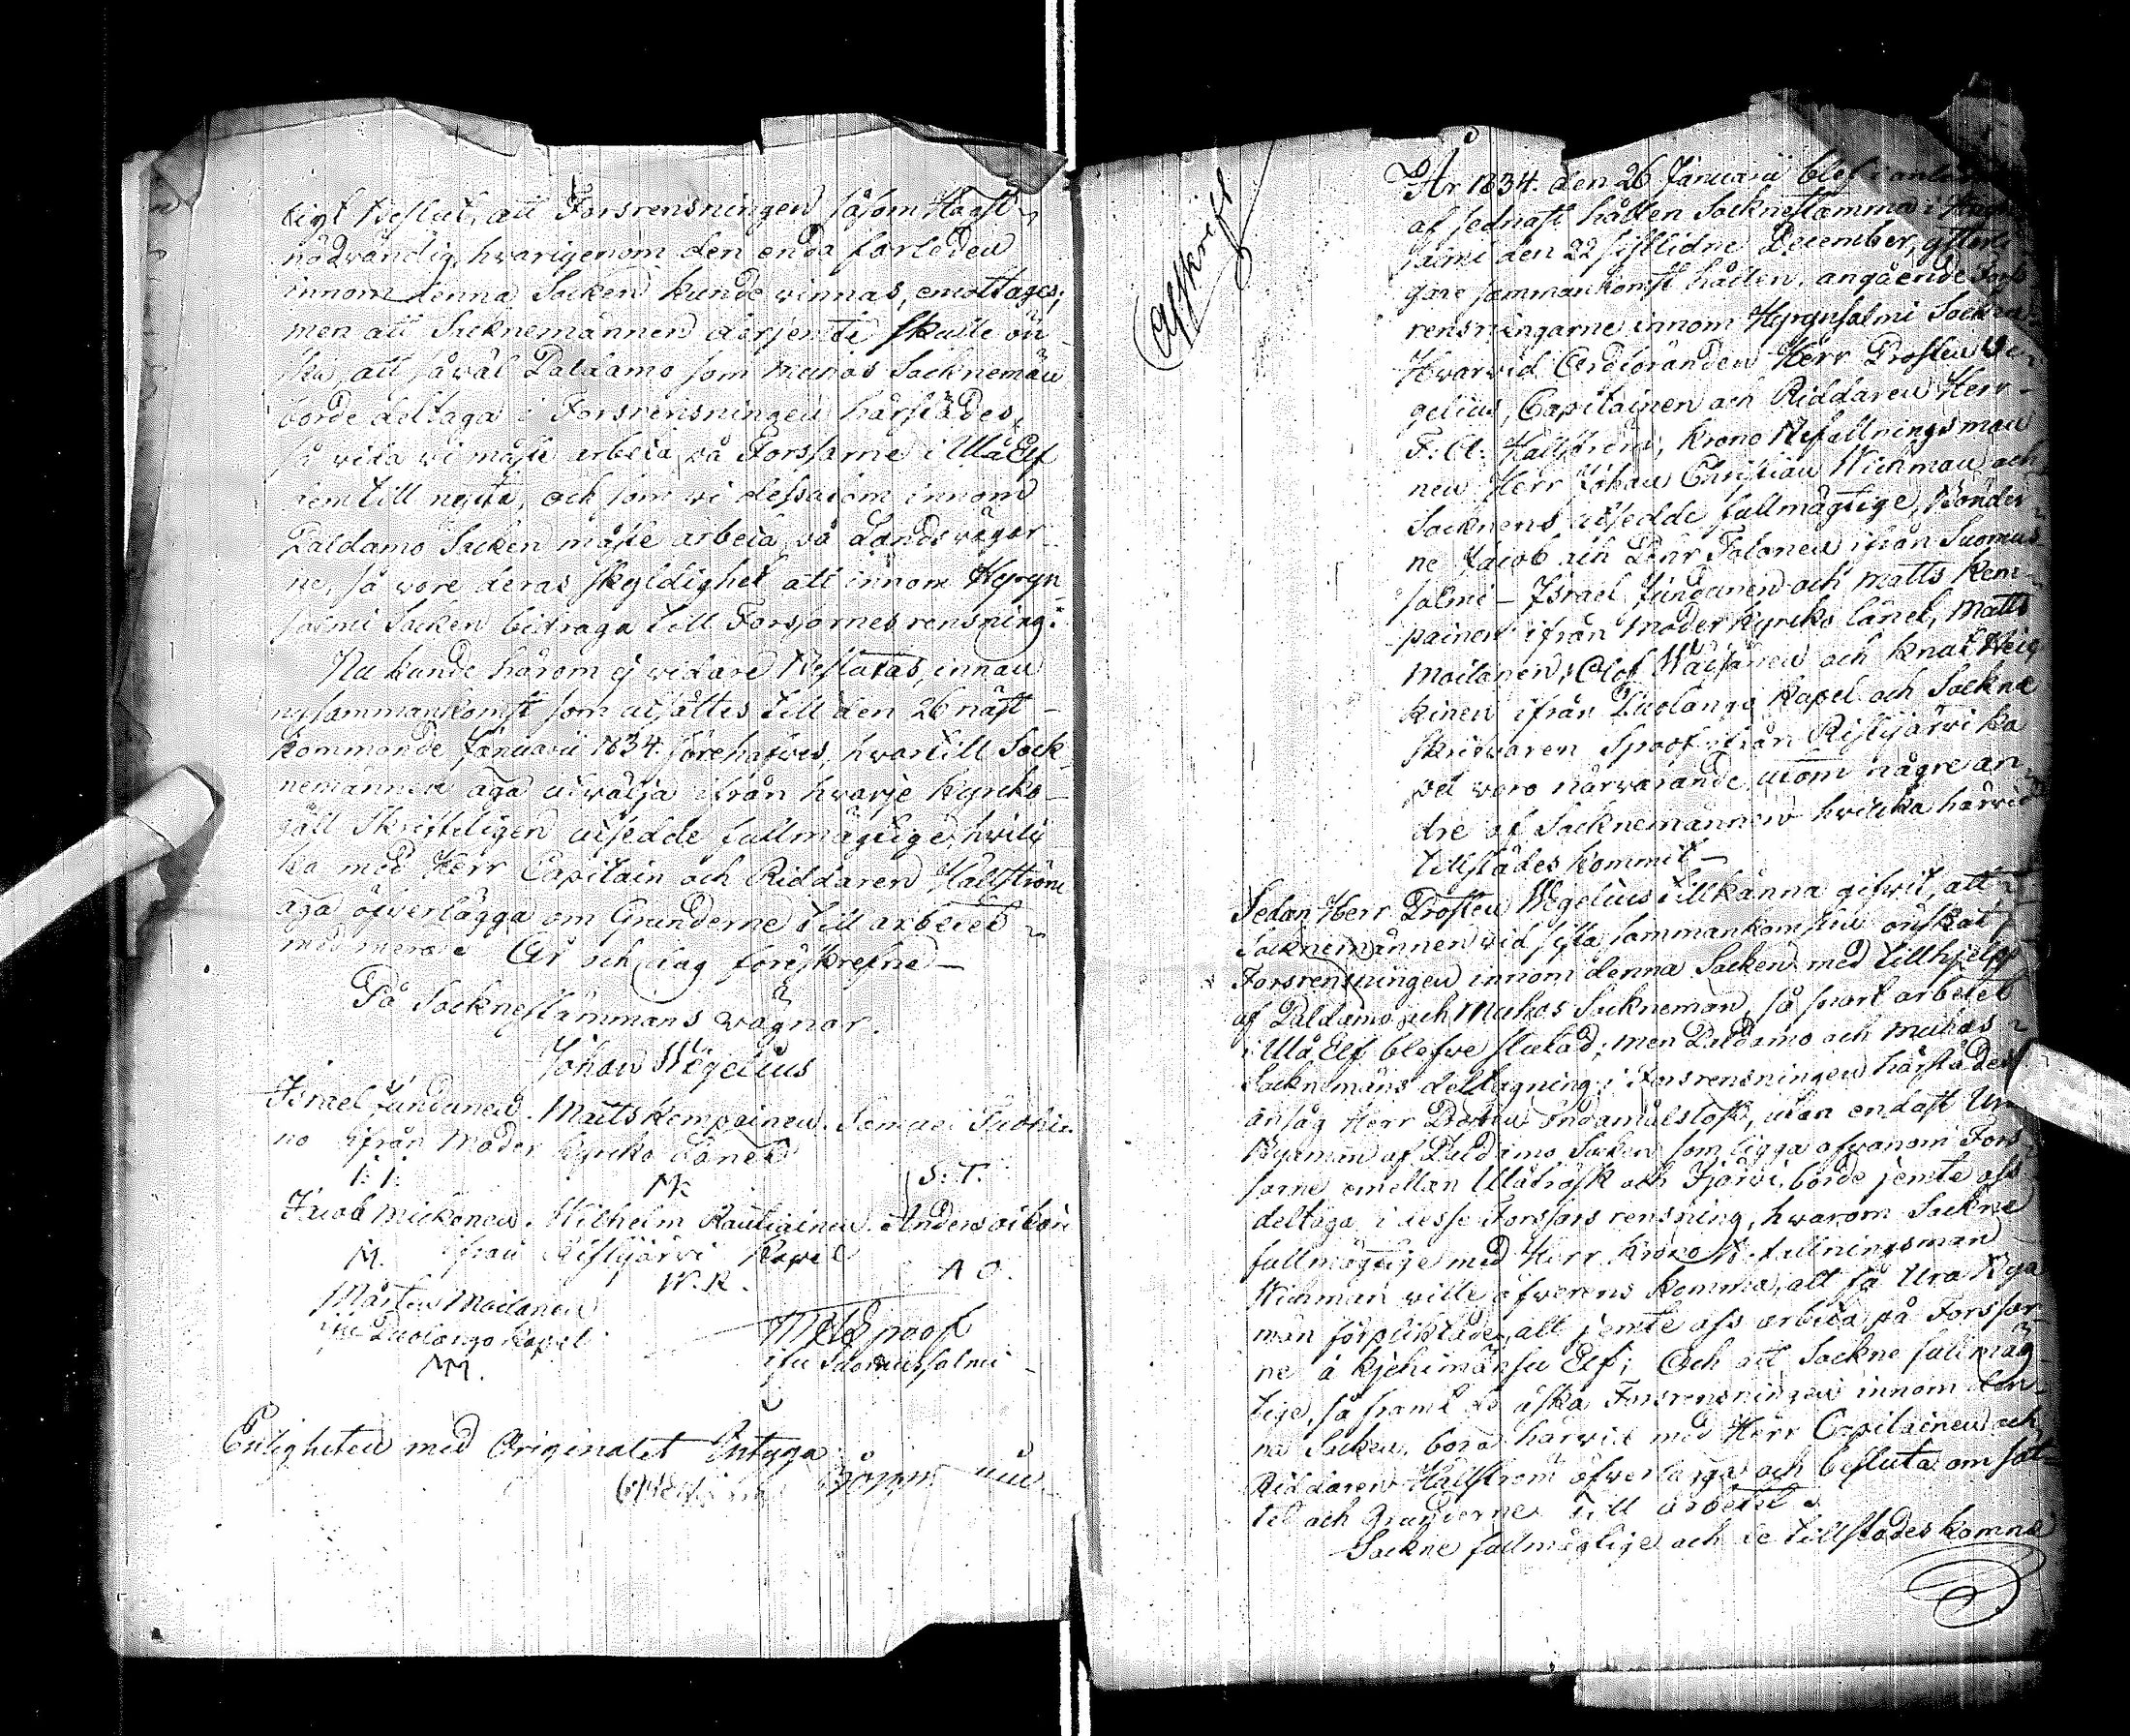 tigt Beslut, att Forsrensningen såsom Högst
nödvändig, hvarigenom den enda farleden
innom denna Socken kunde vinnas, emottages;
men att Socknemännen derjemte skulle ön-
ska, att såväl Paldamo som Muhos Socknemän
borde deltaga i Forsrensningen härstädes,
så vida vi måste arbeta på Forssarne i Ulå Elf
dem till nytta, och som vi dessutom innom
Paldamo Socken måste arbeta på Landsvägar-
ne, så vore deras skyldighet att innom Hyryn-
salmi Socken bidraga till Forssarnes rensning.
Nu kunde härom ej vidare Beslutas, innan
ny sammankomst som utsattes till den 26 näst-
kommande Januarii 1834. förehafves, hvartill Sock-
nemännen äga utvälja ifrån hvarje Kyrko-
gäll Skrifteligen utsedde fullmägtige, hvilt
ka med Herr Capitain och Riddaren Hällström
äga öfverlägga om Grunderne till arbetet
med mera. År och dag föreskrefne—
På Socknestämmans vägnar.
Johan Wegelius
Israel Jundunen. Matts Kempainen. Samuel
no ifrån Moder Kyrko Länet
I: I. M: S: T.
Jacob Mickonen. Wilhelm Rautiainen. Anders
M. ifrån Ristijärvi Kapel
W. R. A O.
Mårten Moilanen
ifrn Puolango Kapel Spoof
M. ifrn Suomussalmi
Enligheten med Originalet Intyga
Afskrift
År 1834. den 26 Januarii blef i
af sednast hållen Socknestämma i
salmi den 22 sistlidne December, ytterli
gare sammankomst hållen, angående Fors
rensningarne innom Hyrynsalmi Socken
Hvarvid Ordföranden Herr Prosten We-
gelius, Capitainen och Riddaren Herr
F: A: Hällström, Krono Befallningsman
nen Herr Johan Christian Wichman och
Socknens utsedde fullmägtige, Bönder-
ne Jacob och Pehr Tolonen ifrån Suomus
salmi – Israel Jundunen och Matts Kem-
painen ifrån Moder Kyrko länet, Matts
Moilanen, Olof Wäisänen och Knut Heig
kinen ifrån Puolango Kapel och Sockne
skrivaren Spoof ifrån Ristijärvi Ka
pel voro närvarande utom någre an-
dre af Socknemännen hvilka härvid
tillstädes kommit—
Sedan Herr Prosten Wegelius tillkänna gifvit, att
Socknemännen vid sista sammankomsten önskat
Forsrensningen innom denna Socken med tillhjelp
af Paldamo och Muhos Sockneman, så snart arbetet
i Ulå Elf blefve slutad; men Paldamo och Muhos
Socknemäns deltagning i Forsrensningen härstädes
ansåg Herr Prosten ändamålslöst, utan endast Ura
Byamän af Paldamo Socken som ligga ofvanom Fors
sarne emellan Ulåträsk och Jjärvi, borde jemte oss
deltaga i desse Forssars rensning, hvarom Sockne
fullmägtige med Herr Krono Befallningsman
Wichman ville öfverens komma, att få Ura Bya
män förpliktade, att jemte oss arbeta på Forssar-
ne å Kjehimänsu Elf; Och att Sockne fullmäg
tige, så framt de äska Forsrensningen innom den-
na Socken, bora härvid med Herr Capitainen och
Riddaren Hällström öfverlägga och besluta om sät-
tet och Grunderne till arbetet.
Sockne fullmägtige och de tillstädes komne